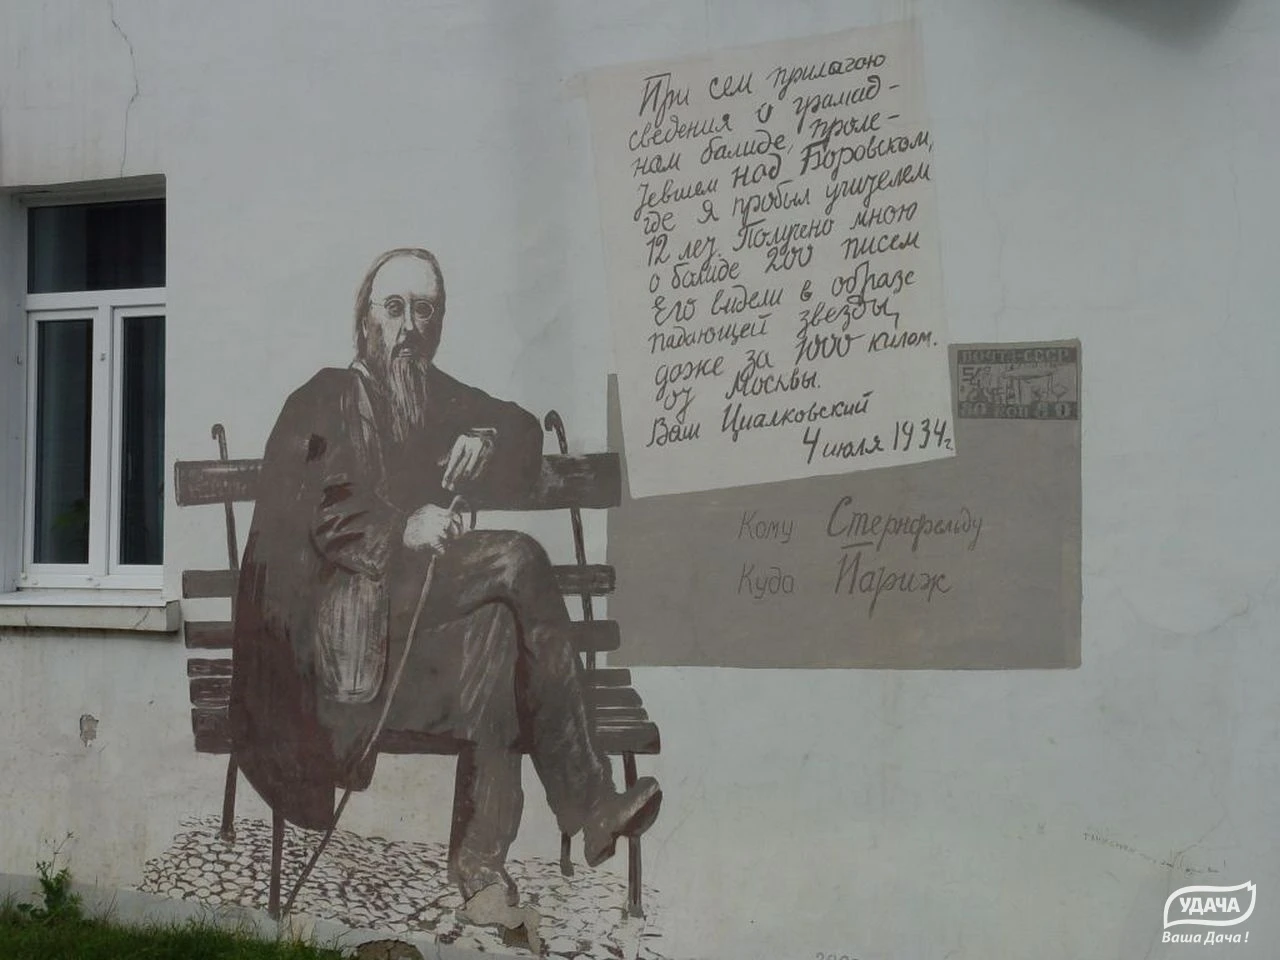 При сем прилагаю
сведения о грамад-
нам балиде, проле-
тевшем над Боровском,
где я пробыл учителем
12 лет. Получено мною
о балиде 200 писем
Его видели в образе
падающей звезды,
даже за 1000 килом.
от Москвы.
Ваш Циалковский
4 июля 1934г.
ПОЧТА-СССР
50 КОП 50
Кому Стернфельду
Куда Париж
УДАЧА
Ваша Дача!